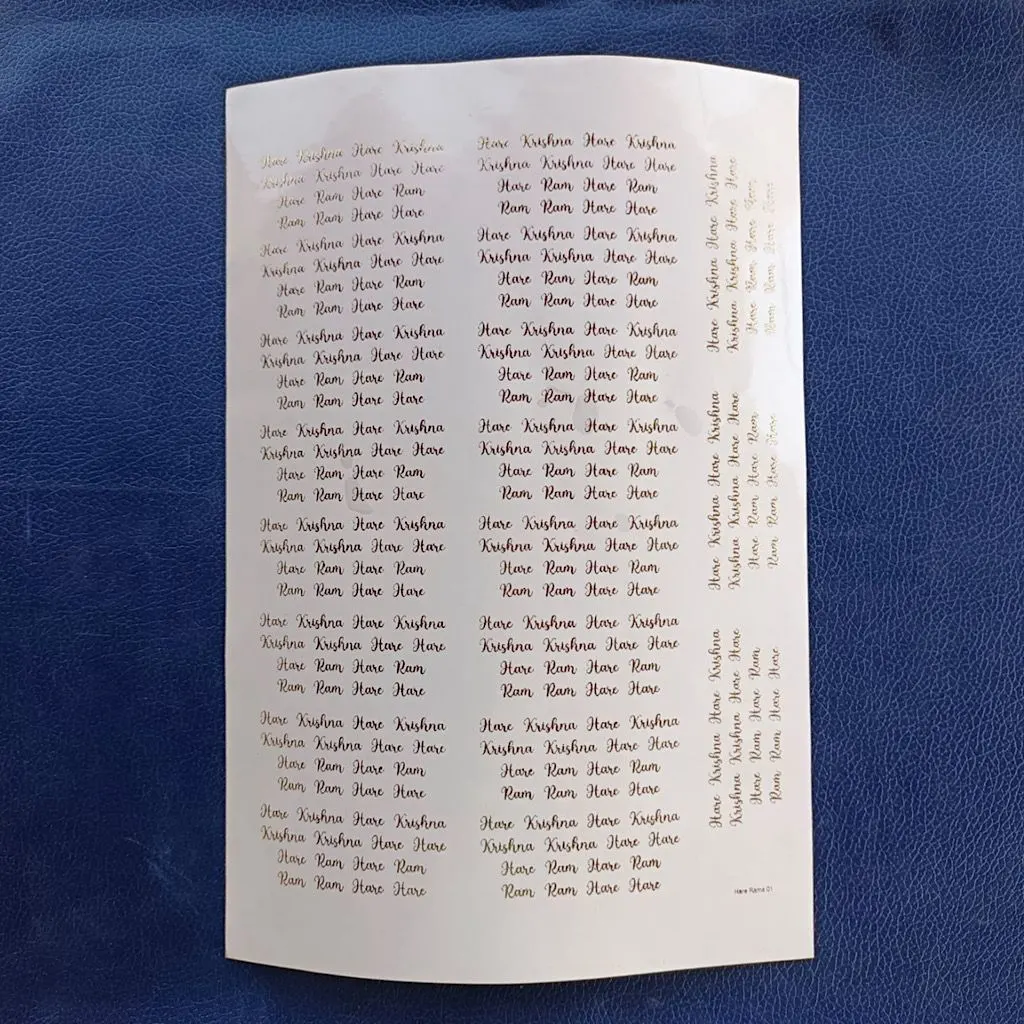 Hare Krishna Hare Krishna
Krishna Krishna Hare Hare
Hare Ram Hare Ram
Ram Ram Hare Hare
Hare Krishna Hare Krishna
Krishna Krishna Hare Hare
Hare Ram Hare Ram
Ram Ram Hare Hare
Hare Krishna Hare Krishna
Krishna Krishna Hare Hare
Hare Ram Hare Ram
Ram Ram Hare Hare
Hare Krishna Hare Krishna
Krishna Krishna Hare Hare
Hare Ram Hare Ram
Ram Ram Hare Hare
Hare Krishna Hare Krishna
Krishna Krishna Hare Hare
Hare Ram Hare Ram
Ram Ram Hare Hare
Hare Krishna Hare Krishna
Krishna Krishna Hare Hare
Hare Ram Hare Ram
Ram Ram Hare Hare
Hare Krishna Hare Krishna
Krishna Krishna Hare Hare
Hare Ram Hare Ram
Ram Ram Hare Hare
Hare Krishna Hare Krishna
Krishna Krishna Hare Hare
Hare Ram Hare Ram
Ram Ram Hare Hare
Hare Krishna Hare Krishna
Krishna Krishna Hare Hare
Hare Ram Hare Ram
Ram Ram Hare Hare
Hare Krishna Hare Krishna
Krishna Krishna Hare Hare
Hare Ram Hare Ram
Ram Ram Hare Hare
Hare Krishna Hare Krishna
Krishna Krishna Hare Hare
Hare Ram Hare Ram
Ram Ram Hare Hare
Hare Krishna Hare Krishna
Krishna Krishna Hare Hare
Hare Ram Hare Ram
Ram Ram Hare Hare
Hare Krishna Hare Krishna
Krishna Krishna Hare Hare
Hare Ram Hare Ram
Ram Ram Hare Hare
Hare Krishna Hare Krishna
Krishna Krishna Hare Hare
Hare Ram Hare Ram
Ram Ram Hare Hare
Hare Krishna Hare Krishna
Krishna Krishna Hare Hare
Hare Ram Hare Ram
Ram Ram Hare Hare
Hare Krishna Hare Krishna
Krishna Krishna Hare Hare
Hare Ram Hare Ram
Ram Ram Hare Hare
Hare Krishna Hare Krishna
Krishna Krishna Hare Hare
Hare Ram Hare Ram
Ram Ram Hare Hare
Hare Krishna Hare Krishna
Krishna Krishna Hare Hare
Hare Ram Hare Ram
Ram Ram Hare Hare
Hare Krishna Hare Krishna
Krishna Krishna Hare Hare
Hare Ram Hare Ram
Ram Ram Hare Hare
Hare Rama 01